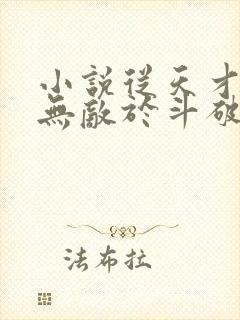 小說從天才
無敵於斗破
法布拉